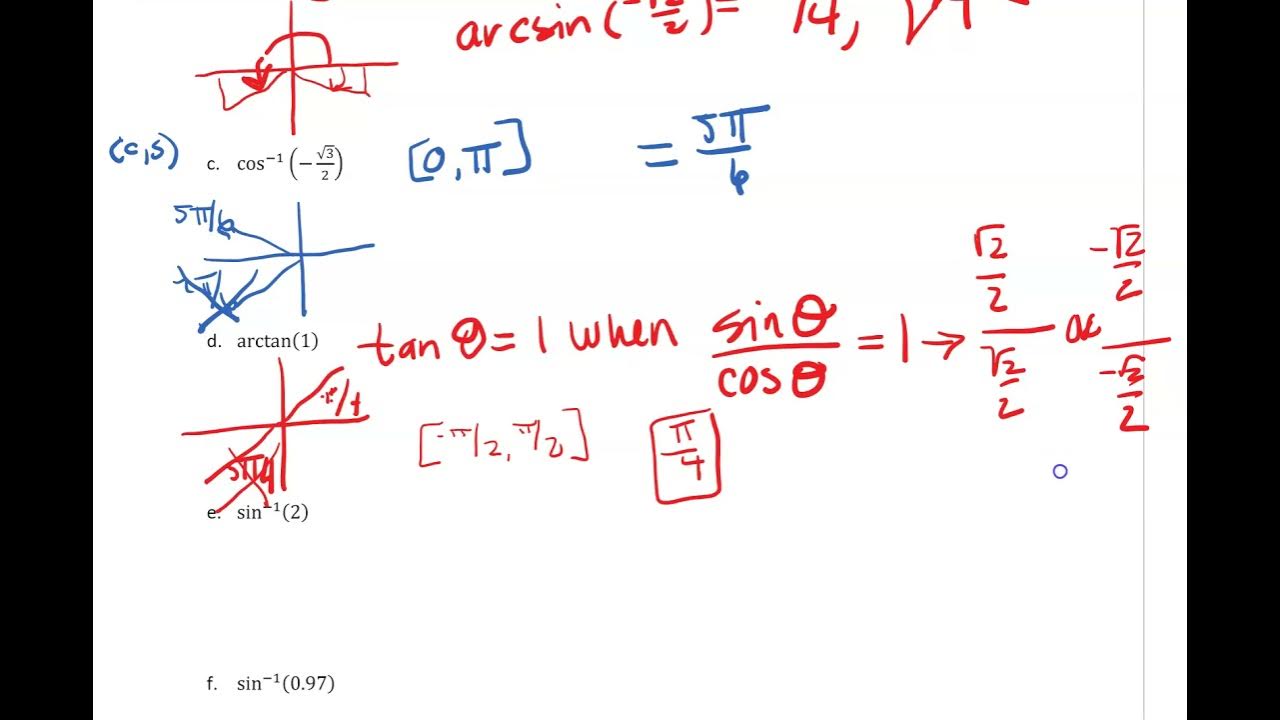 arcsin(-√2/2) =
(c,s) c. cos⁻¹(-√3/2) [0,π] = 5π/6
5π/6
d. arctan(1) tan θ = 1 when sinθ/cosθ = 1 → (√2/2)/(√2/2) or (-√2/2)/(-√2/2)
[-π/2, π/2] π/4
5π/4
e. sin⁻¹(2)
f. sin⁻¹(0.97)